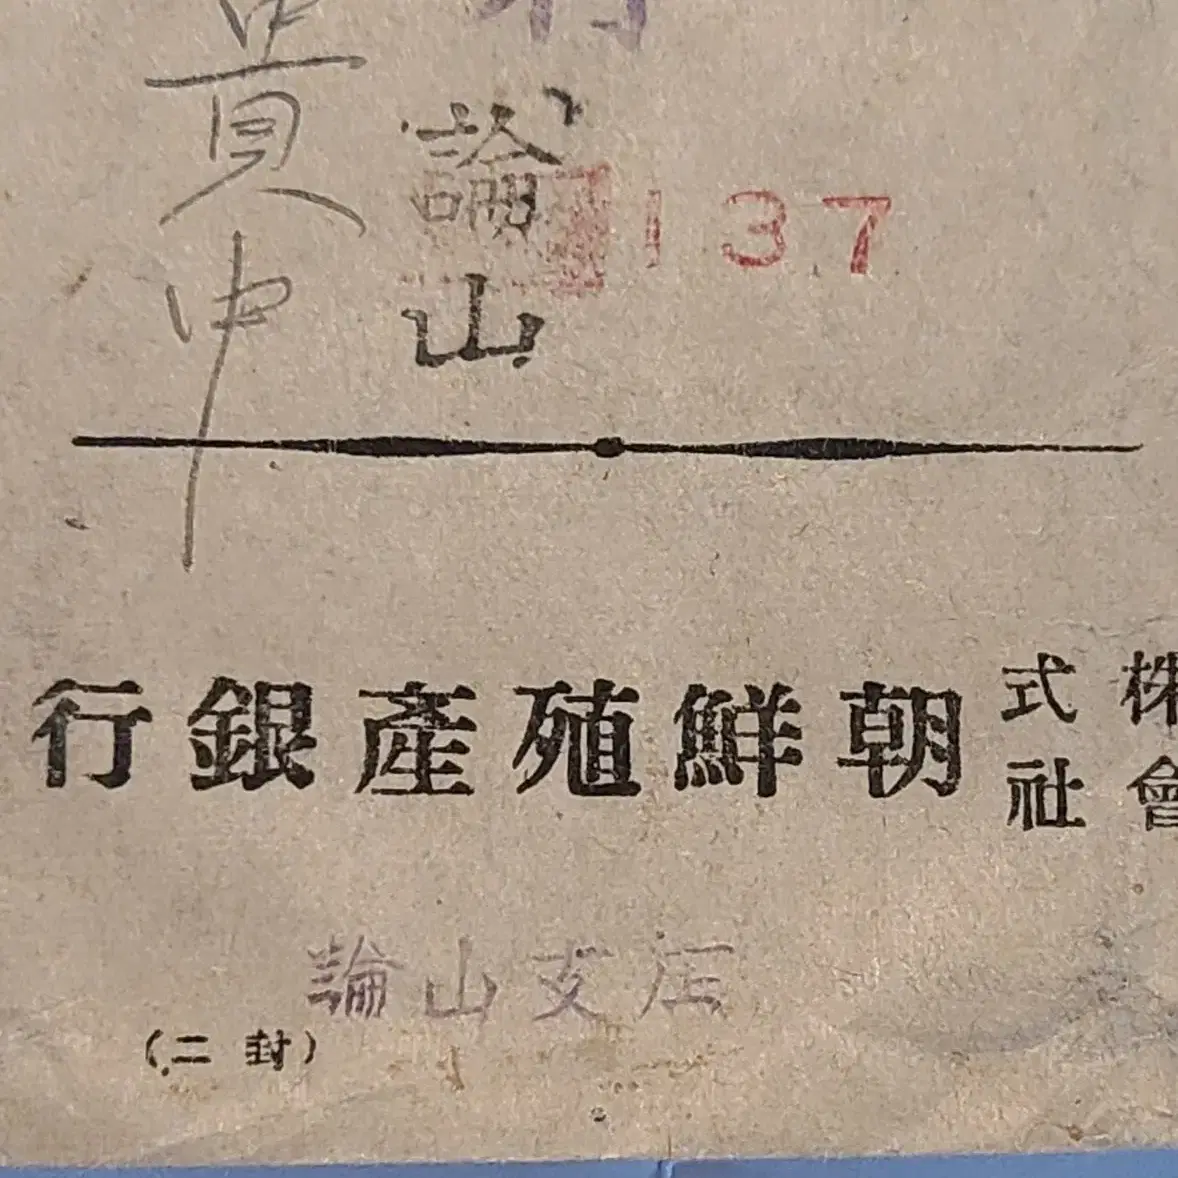 貴中
論山
137
株式會社朝鮮殖產銀行
論山支店
(封二)